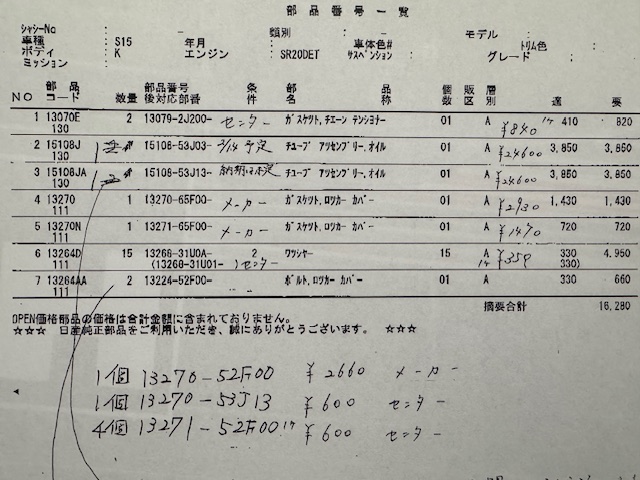 部品番号一覧
シャシーNo : 類別 : モデル :
車種 : S15 年月 - 車体色# : トリム色 :
ボディ : K エンジン : SR20DET サスペンション : グレード :
ミッション :
部品 部品番号 条 部 品 個 販 層 適 要
NO コード 数量 後対応部番 件 名 称 数 区 別
1 13070E 2 13079-2J200- センター ガスケツト,チエーン テンシヨナー 01 A ¥840 1ケ 410 820
130
2 15108J 1 15108-53J03- 2/14予定 チユーブ アツセンブリー,オイル 01 A ¥24600 3,850 3,850
130
3 15108JA 1 15108-53J13- 納期未定 チユーブ アツセンブリー,オイル 01 A ¥24600 3,850 3,850
130
4 13270 1 13270-65F00- メーカー ガスケツト,ロツカー カバー 01 A ¥2930 1,430 1,430
111
5 13270N 1 13271-65F00- メーカー ガスケツト,ロツカー カバー 01 A ¥1470 720 720
111
6 13264D 15 13266-31U0A- 2 ワツシヤー 15 A 1ケ ¥359 330 4,950
111 (13268-31U01- )センター 330)
7 13264AA 2 13224-52F00- ボルト,ロツカー カバー 01 A 330 660
111
摘要合計 16,280
OPEN価格部品の価格は合計金額に含まれておりません。
☆☆☆ 日産純正部品をご利用いただき、誠にありがとうございます。 ☆☆☆
1個 13270-52F00 ¥2660 メーカー
1個 13270-53J13 ¥600 センター
4個 13271-52F00 1ケ ¥600 センター